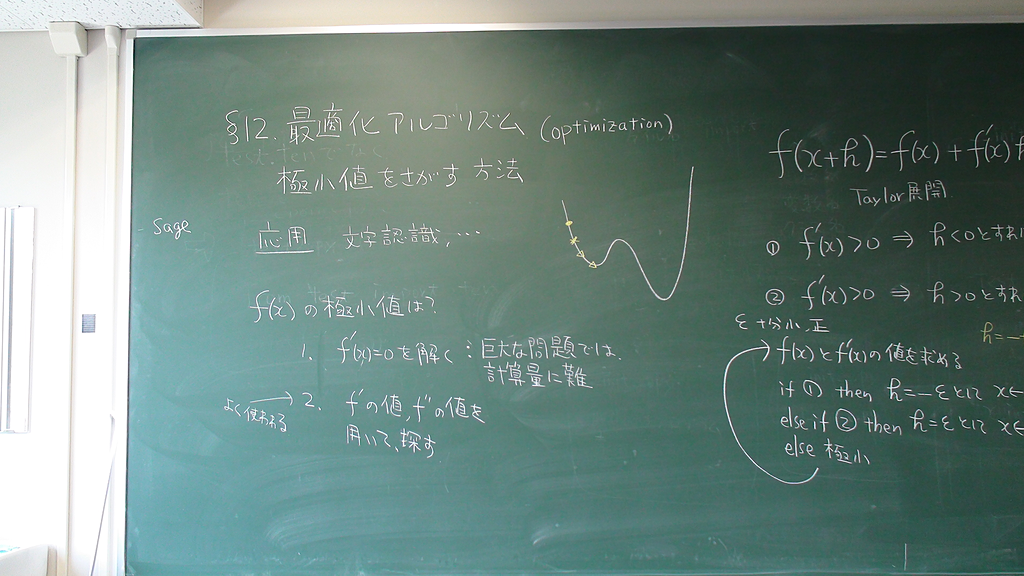 §12. 最適化アルゴリズム (optimization)
極小値をさがす方法
- Sage
応用 文字認識, …
f(x)の極小値は?
1. f'(x)=0を解く : 巨大な問題では、
計算量に難
よく使われる → 2. f'の値, f''の値を
用いて、探す
f(x+h)=f(x)+f'(x)h
Taylor展開
① f'(x)>0 ⇒ h<0とすれば
② f'(x)>0 ⇒ h>0とすれ
ε十分小, 正
h=−
f(x)とf'(x)の値を求める
if ① then h=−εとして x←
else if ② then h=εとして x←
else 極小